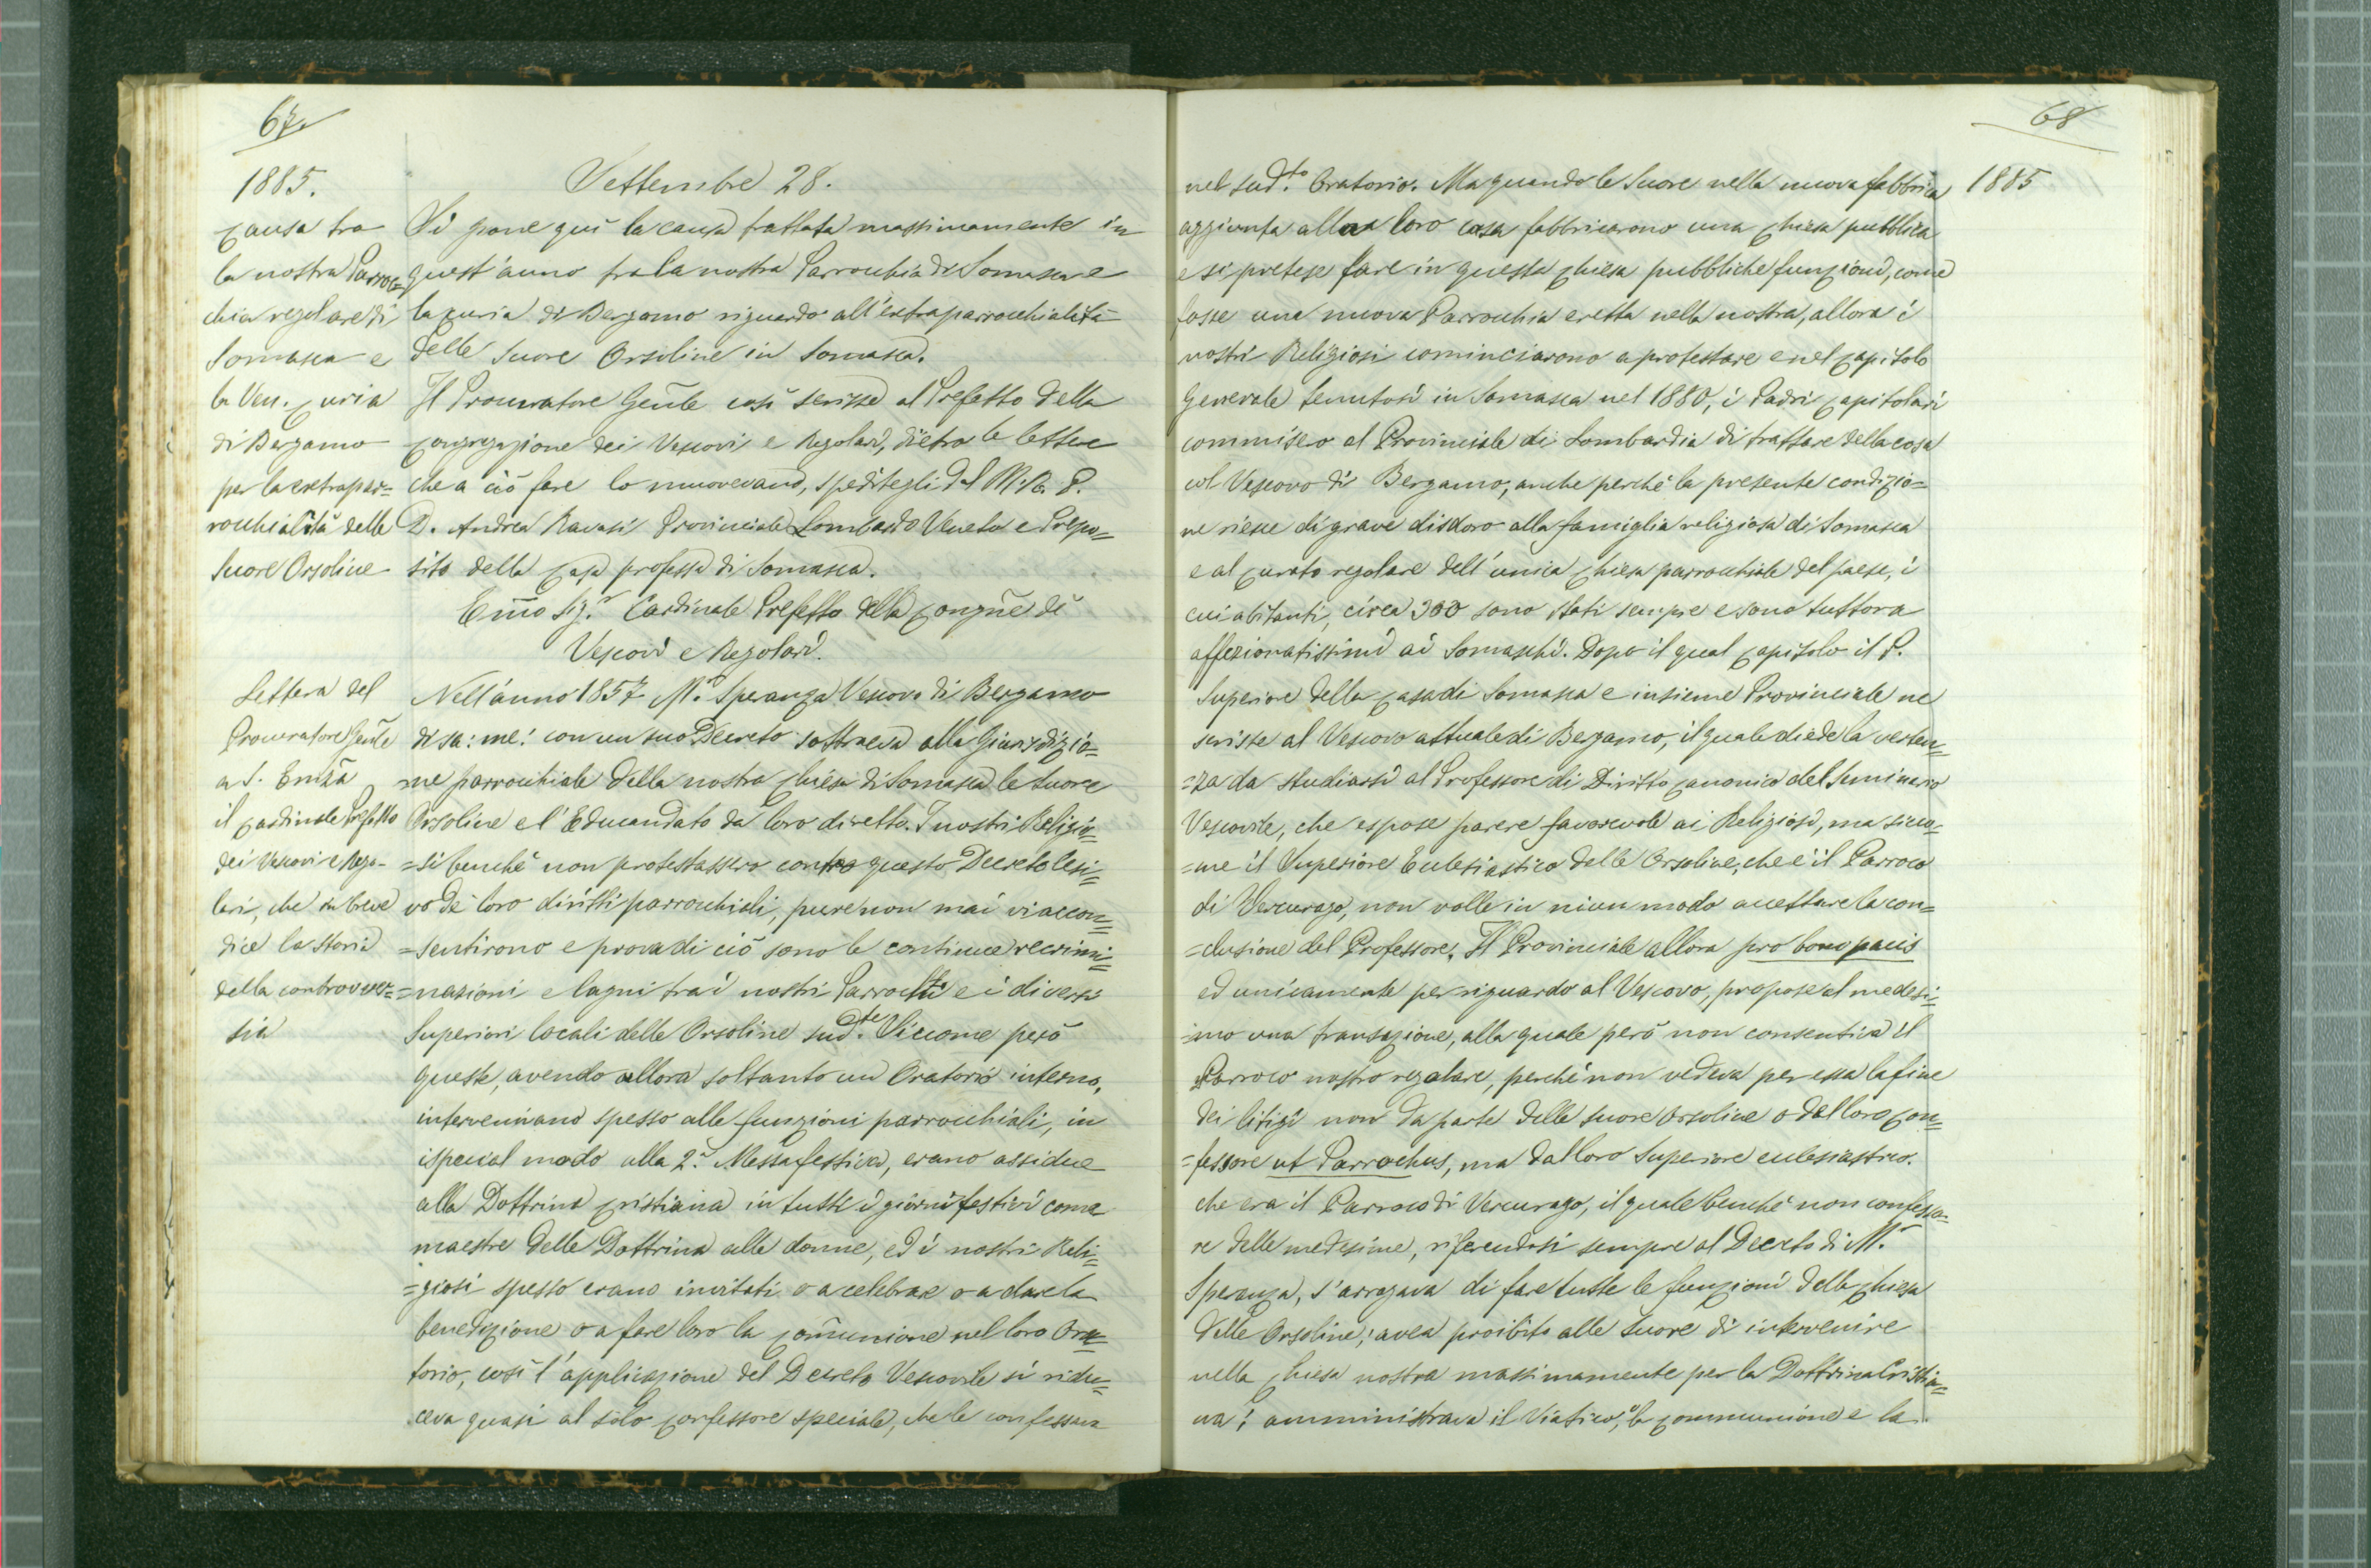 67.
1885.
Causa tra
la nostra Parroc=
chia regolare di
Somasca e
la Ven. Curia
di Bergamo
per la extrapar=
rocchialità delle
Suore Orsoline
Lettera del
Procuratore Gen̄le
a S. Emz̄a
il Cardinale Prefetto
dei Vescovi e Rego-
lari, che in breve
dice la storia
della controver=
sia
Settembre 28.
Si pone quì la causa trattata massimamente in
quest'anno fra la nostra Parrochia di Somasca e
la Curia di Bergamo riguardo all'extraparrochialità
delle Suore Orsoline in Somasca.
Il Procuratore Gen̄le così scrisse al Prefetto della
Congregazione dei Vescovi e Regolari, dietro le lettere
che a ciò fare lo muovevano, speditegli dal M. R. P.
D. Andrea Ravasi Provinciale Lombardo Veneto e Prepo=
sito della Casa professa di Somasca.
Em̄o Sig.r Cardinale Prefetto della Congrñe di
Vescovi e Regolari.
Nell'anno 1857 M.r Speranza Vescovo di Bergamo
di sa: me: con un suo Decreto sottraeva alla Giurisdizio=
ne parrochiale della nostra Chiesa di Somasca le Suore
Orsoline e l'Educandato da loro diretto. I nostri Religio=
=si benchè non protestassero contro questo Decreto lesi=
vo de' loro diritti parrochiali, pure non mai vi accon=
=sentirono e prova di ciò sono le continue recrimi=
=nazioni e lagni tra i nostri Parrochi e i diversi
Superiori locali delle Orsoline sud.te Siccome però
queste, avendo allora soltanto un Oratorio interno,
intervenivano spesso alle funzioni parrochiali, in
ispecial modo alla 2.a Messa festiva, erano assidue
alla Dottrina Cristiana in tutti i giorni festivi come
maestre della Dottrina alle donne, ed i nostri Reli=
=giosi spesso erano invitati o a celebrare o a dare la
benedizione o a fare loro la Com̄unione nel loro Ora=
torio, così l'applicazione del Decreto Vescovile si ridu=
ceva quasi al solo Confessore speciale, che le confessava
68
1885
nel sud.to Oratorio. Ma quando le Suore nella nuova fabbrica
aggiunta alla loro casa fabbricarono una Chiesa pubblica
e si pretese fare in questa Chiesa pubbliche funzioni, come
fosse una nuova Parrochia eretta nella nostra, allora i
nostri Religiosi cominciarono a protestare e nel Capitolo
Generale tenutosi in Somasca nel 1880, i Padri Capitolari
commisero al Provinciale di Lombardia di trattare della cosa
col Vescovo di Bergamo, anche perchè la presente condizio=
ne riesce di grave disdoro alla famiglia religiosa di Somasca
e al Curato regolare dell'unica Chiesa parrochiale del paese, i
cui abitanti, circa 300 sono stati sempre e sono tuttora
affezionatissimi ai Somaschi. Dopo il qual Capitolo il P.
Superiore della Casa di Somasca e insieme Provinciale ne
scrisse al Vescovo attuale di Bergamo, il quale diede la verten=
=za da studiarsi al Professore di Diritto Canonico del Seminario
Vescovile, che espose parere favorevole ai Religiosi, ma sicco=
=me il Superiore Ecclesiastico delle Orsoline, che è il Parroco
di Vercurago, non volle in niun modo accettare la con=
=clusione del Professore. Il Provinciale allora pro bono pacis
ed unicamente per riguardo al Vescovo, propose al medesi=
=mo una transazione, alla quale però non consentiva il
Parroco nostro regolare, perchè non vedeva per essa la fine
dei litigi non da parte delle Suore Orsoline o dal loro Con=
=fessore ut Parrochus, ma dal loro Superiore ecclesiastico.
che era il Parroco di Vercurago, il quale benchè non confesso=
re delle medesime, riferendosi sempre al Decreto di M.r
Speranza, s'arrogava di fare tutte le funzioni della Chiesa
delle Orsoline; avea proibito alle Suore di intervenire
nella Chiesa nostra massimamente per la Dottrina Cristia=
na; amministrava il Viatico, la Communione e la